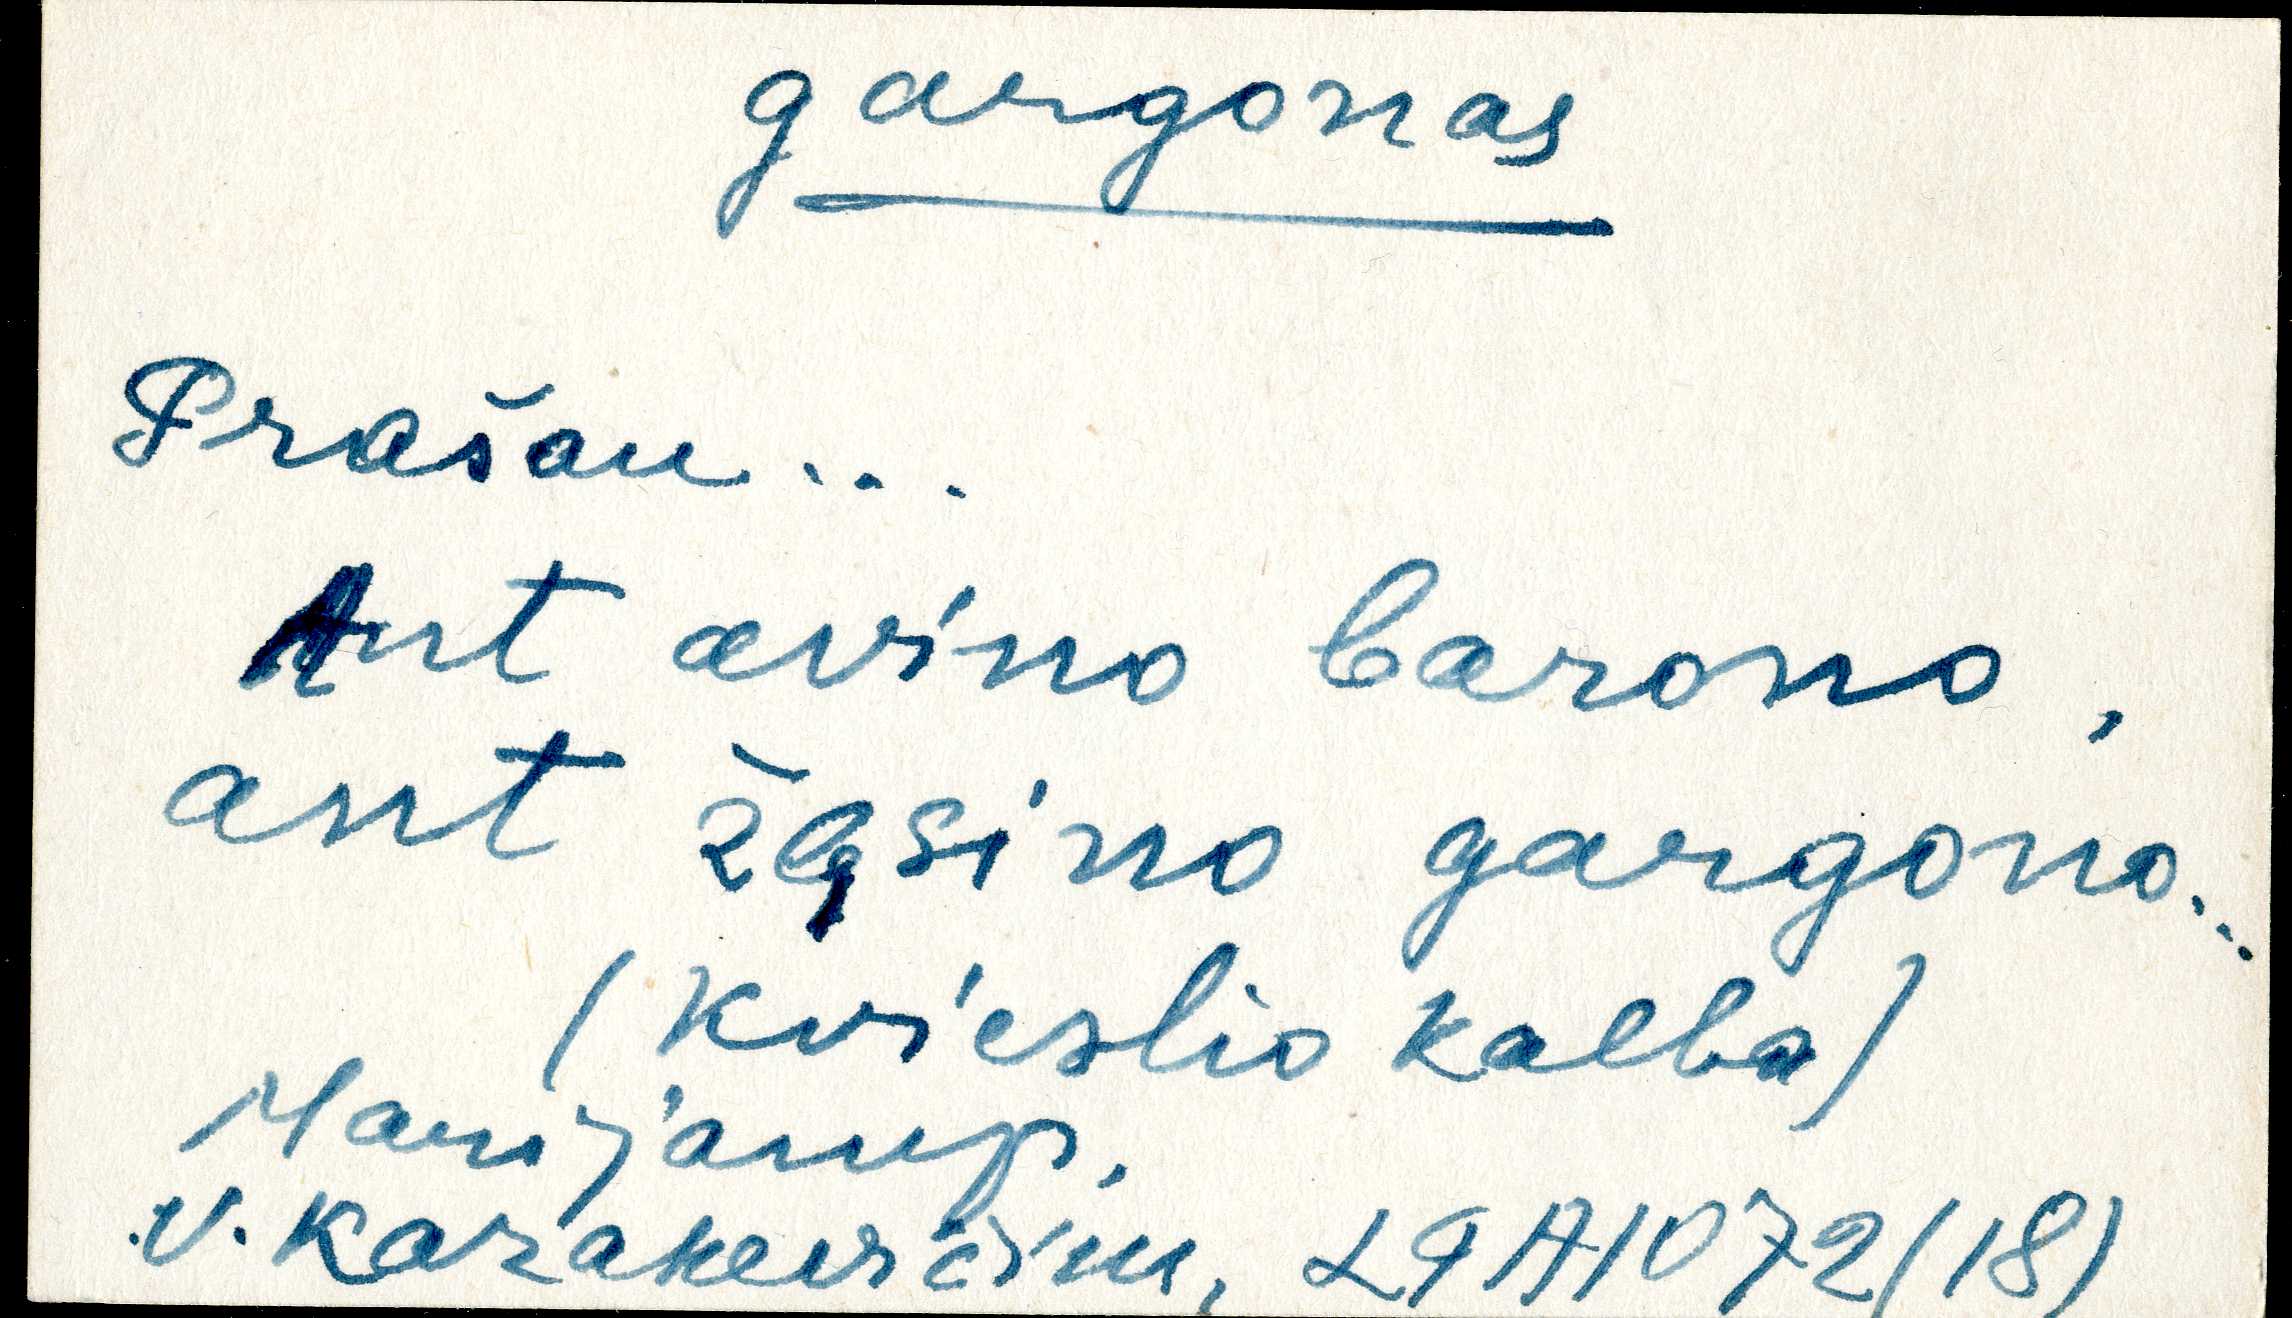 gargonas
Prašau...
Ant avino barono,
ant žąsino gargono...
(Kvieslio kalba)
Marijamp.
V. Kazakevičius, LTA1072(18)